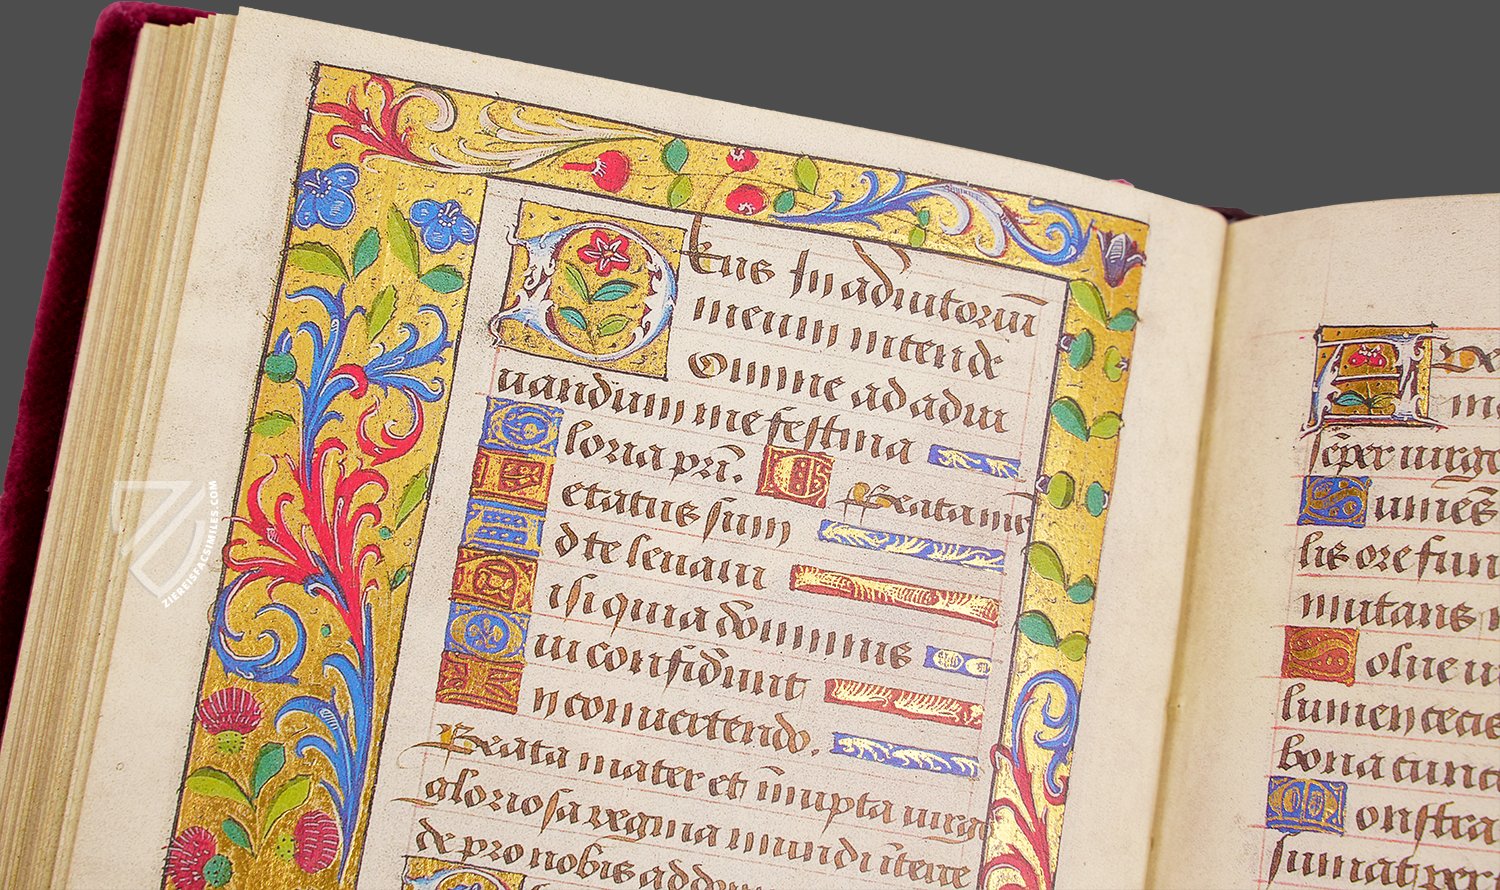 Deus in adiutoriũ
meum intende
Domine ad adiu
uandum me festina
Gloria pri. Ps
Beata me
Letatus sum
Ad te leuaui
Nisi quia dominus
Qui confidunt
In conuertendo.
Beata mater et inupta uirgo
gloriosa regina mundi ĩterce
de pro nobis ad dom
Aue
ma
semper uirgo
Sumẽs
lis ore fun
mutans
Solue ui
lumen cecis
bona cunc
Monstra
sumat per
ZIEREISFACSIMILES.COM